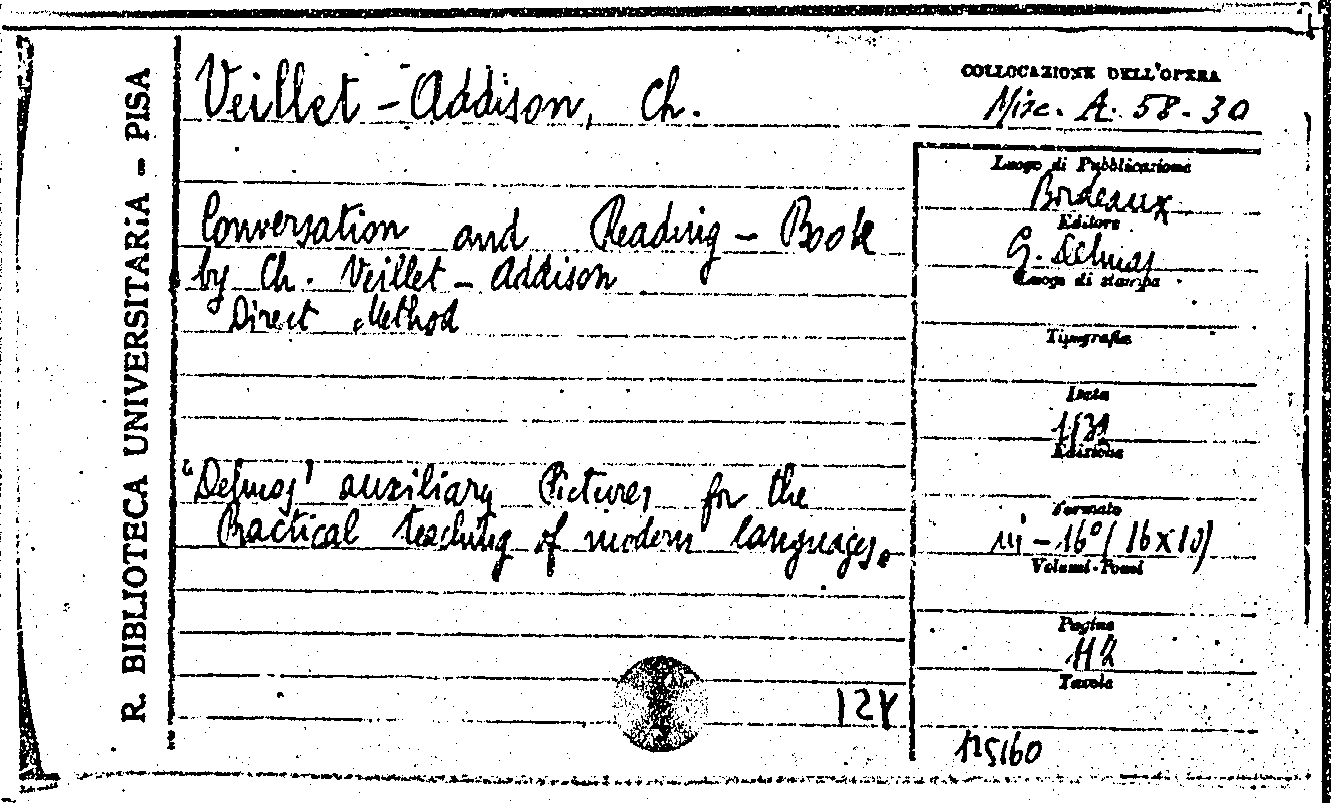 R. BIBLIOTECA UNIVERSITARIA - PISA
Veillet - Addison, Ch.
COLLOCAZIONE DELL'OPERA
Misc. A. 58 - 30
Conversation and Reading - Book
by Ch. Veillet - Addison
Direct Method
"Delmas" auxiliary Pictures for the
Practical teaching of modern languages.
Luogo di Pubblicazione
Bordeaux
Editore
G. Delmas
Luogo di stampa
Tipografia
Data
Edizione
Formato
in - 16° (16x10)
Volumi-Tomi
Pagine
112
Tavole